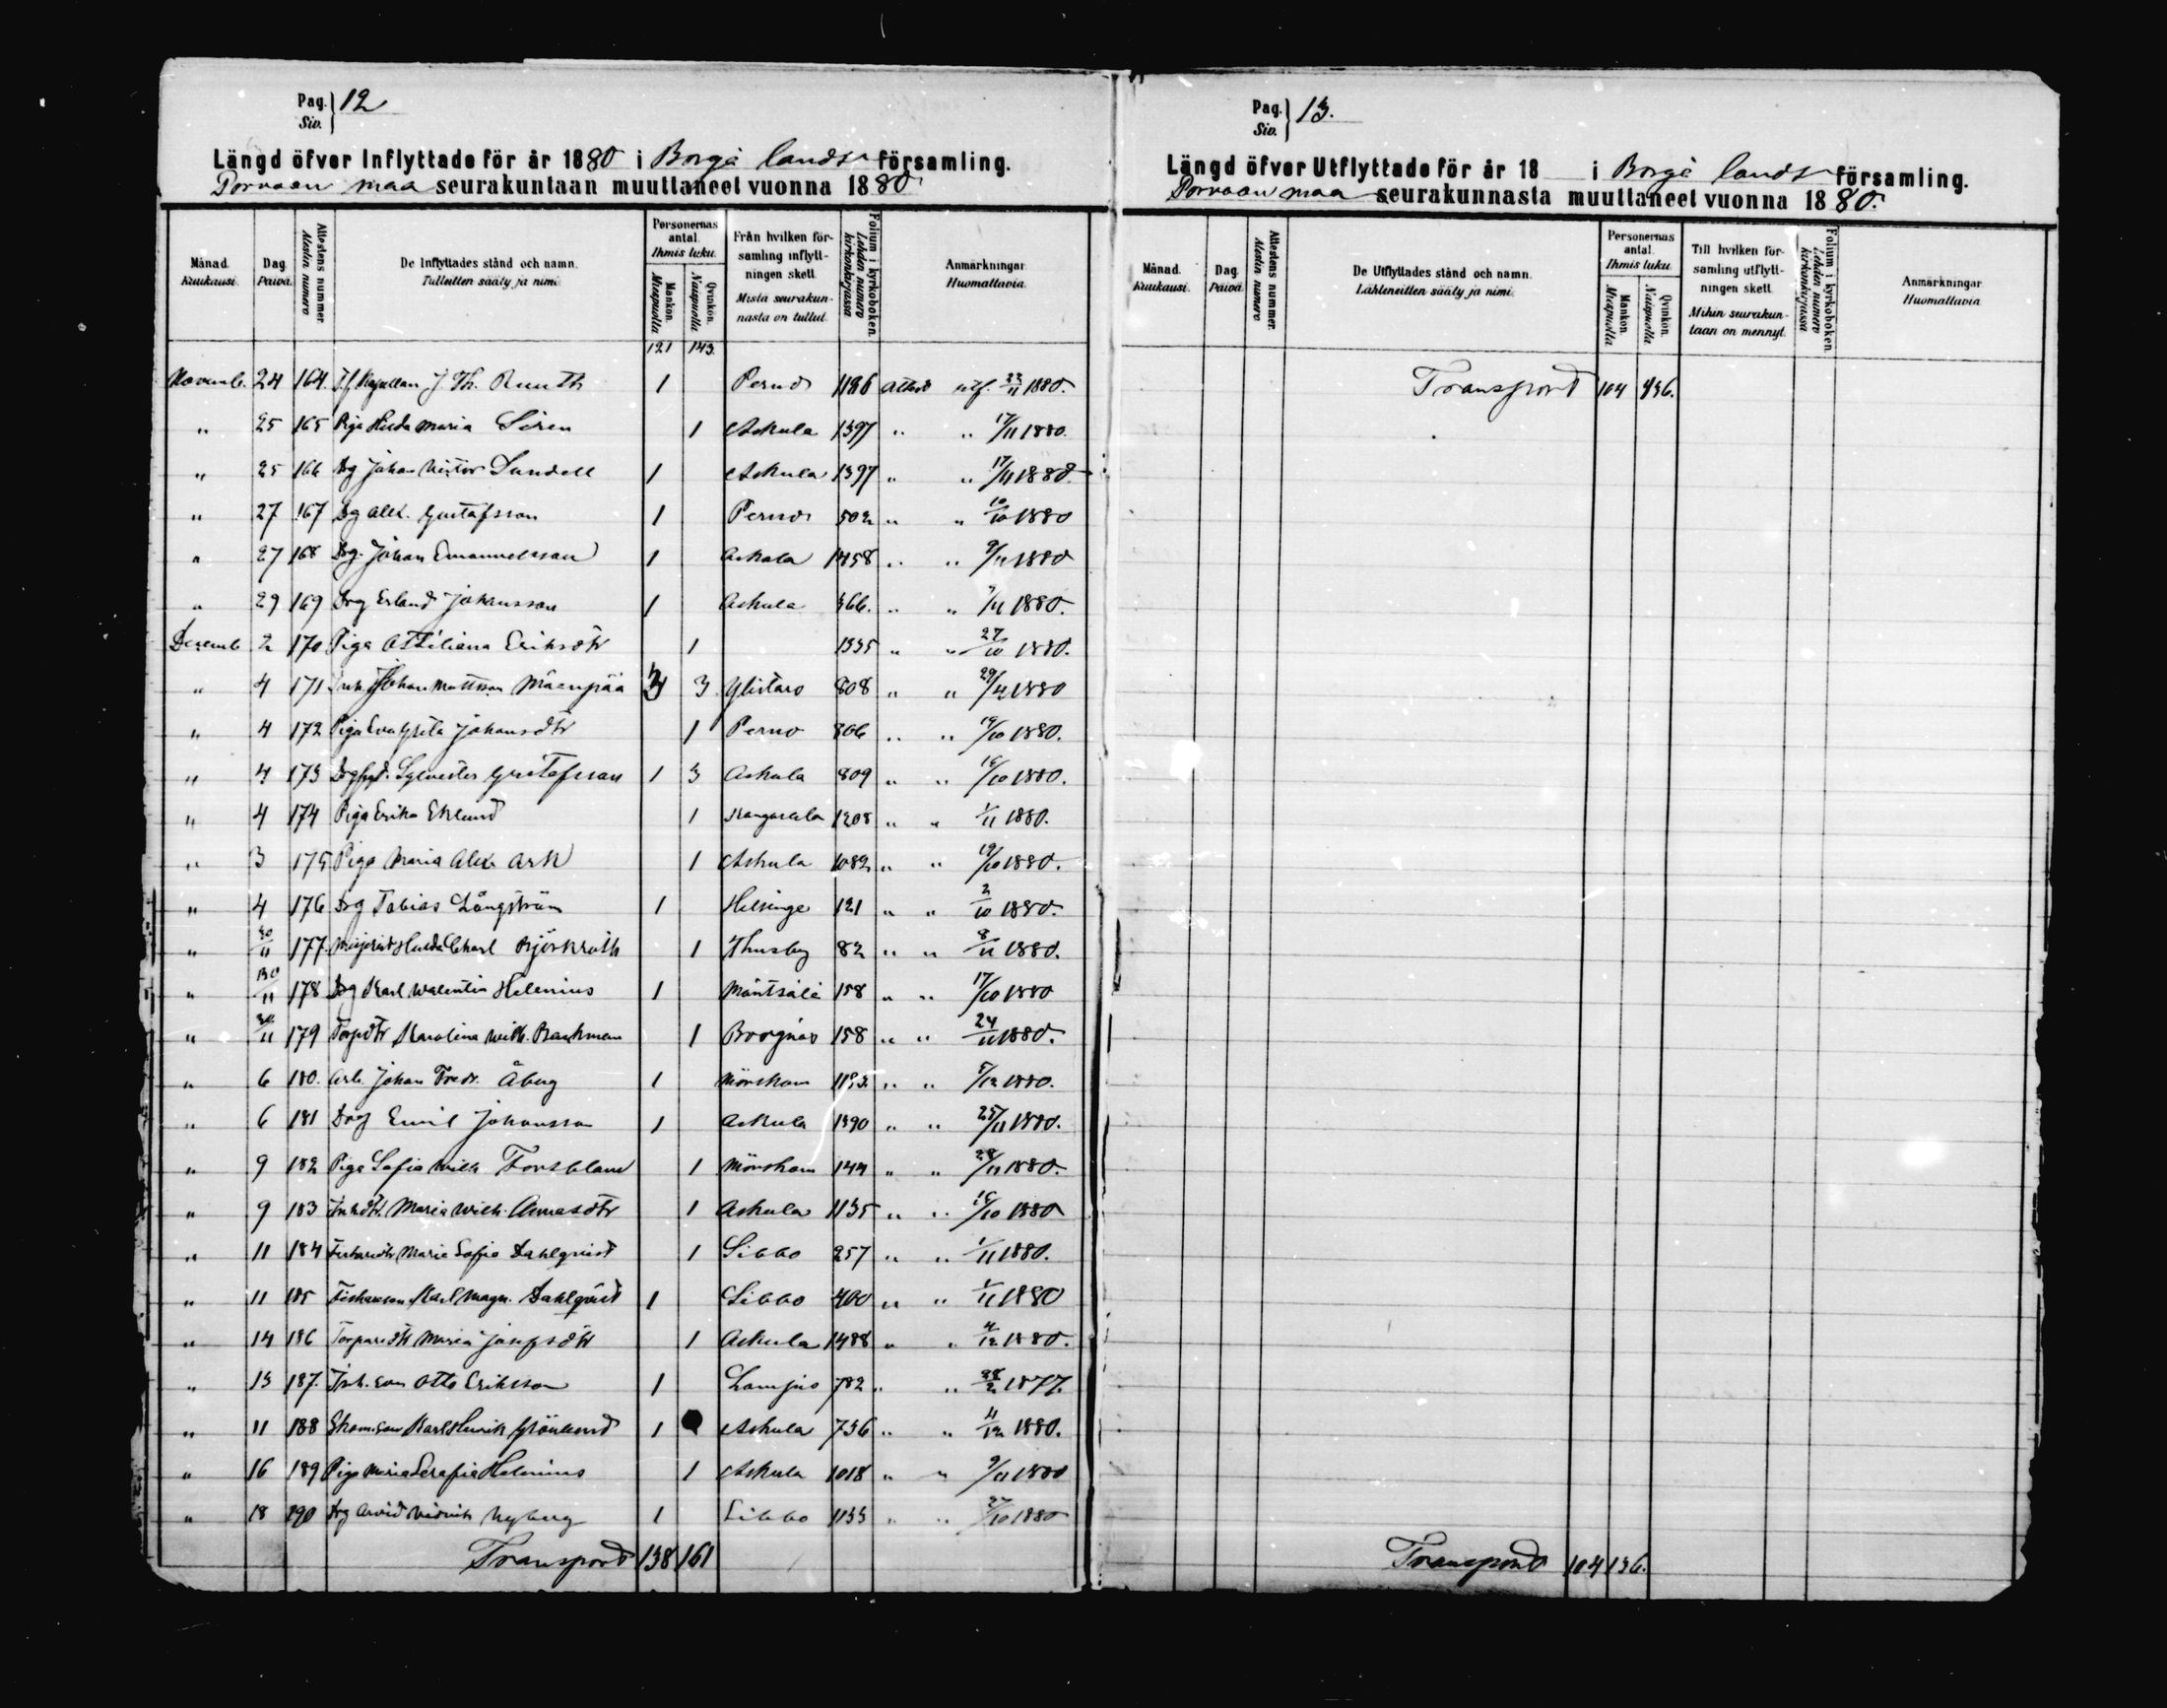 Pag. 12
Siv.
Längd öfver Inflyttade för år 1880 i Borgå lands församling.
Porvoon maa seurakuntaan muuttaneet vuonna 1880.
Månad. Kuukausi. Dag. Päivä. Attestens nummer. Atestin numero De Inflyttades stånd och namn. Tulleitten sääty ja nimi. Personernas antal. Ihmis luku. Mankön. Miespuolia Qvinkön. Naispuolia Från hvilken församling inflyttningen skett. Mistä seurakunnasta on tullut. Folium i kyrkoboken. Lehden numero kirkonkirjassa Anmärkningar Huomattavia.
121 143.
Novemb. 24 164. J. Th. Ruuth 1 Perno 1186 Attest utf. 22/11 1880.
" 25 165 Piga Hilda Maria Siren 1 Askula 1397 " " 17/11 1880.
" 25 166 Drg Johan Viktor Lundell 1 Askula 1397 " " 17/11 1880.
" 27 167 Drg Alex. Gustafsson 1 Perno 502 " " 10/10 1880
" 27 168 Drg. Johan Emanuelsson 1 Askola 1458 " " 9/11 1880
" 29 169 Drg Erland Johansson 1 Askula 366. " " 7/11 1880.
Decemb 2 170 Piga Ottiliana Eriksdtr 1 1335 " " 27/10 1880.
" 4 171 Inh. Johan Mattsson Mäenpää 3 3 Ylistaro 808 " " 29/4 1880
" 4 172 Piga Eva Greta Johansdtr 1 Perno 806 " " 19/10 1880.
" 4 173 Sylvester Gustafsson 1 3 Askula 809 " " 16/10 1880.
" 4 174 Piga Erika Eklund 1 Kangasala 1208 " " 1/11 1880.
" 3 175 Piga Maria Alex Ark 1 Askula 1082 " " 19/10 1880.
" 4 176 Drg Tobias Långström 1 Helsinge 121 " " 2/10 1880.
" 30/11 177. Hulda Charl Björkroth 1 Thusby 82 " " 8/11 1880.
" 30/11 178 Drg Karl Walentin Helenius 1 Mäntsälä 158 " " 17/10 1880
" 30/11 179 Torpdtr Karolina Wilh. Backman 1 Borgnäs 158 " " 24/11 1880.
" 6 180. Arb. Johan Fredr. Åberg 1 Mörskom 1193 " " 5/12 1880.
" 6 181 Drg Emil Johansson 1 Askula 1390 " " 25/11 1880.
" 9 182 Piga Sofia Wilh Forsblom 1 Mörskom 144 " " 28/11 1880.
" 9 183 Inhdtr. Maria Wilh. Annasdtr 1 Askula 1135 " " 16/10 1880
" 11 184 Maria Sofia Dahlqvist 1 Sibbo 257 " " 1/11 1880.
" 11 185 Karl Magn. Dahlqvist 1 Sibbo 400 " " 1/11 1880
" 14 186 Torparedtr Maria Josefsdtr 1 Askula 1488 " " 4/12 1880.
" 13 187. Inh. son Otto Eriksson 1 Lampis 782 " " 28/2 1877.
" 11 188 Karl Henrik Grönlund 1 Askula 736 " " 4/12 1880.
" 16 189 Piga Maria Serafia Helenius 1 Askula 1018 " " 9/11 1880
" 18 190 Drg Arvid Nyberg 1 Sibbo 1133 " " 27/10 1880
Transport 138 161
Pag. 13.
Siv.
Längd öfver Utflyttade för år 18 i Borgå lands församling.
Porvoon maa seurakunnasta muuttaneet vuonna 1880.
Månad. Kuukausi. Dag. Päivä. Attestens nummer. Atestin numero De Utflyttades stånd och namn. Lähteneitten sääty ja nimi. Personernas antal. Ihmis luku. Mankön. Miespuolia Qvinkön. Naispuolia Till hvilken församling utflyttningen skett. Mihin seurakuntaan on mennyt. Folium i kyrkoboken. Lehden numero kirkonkirjassa Anmärkningar Huomattavia
Transport 104 136.
Transport 104 136.